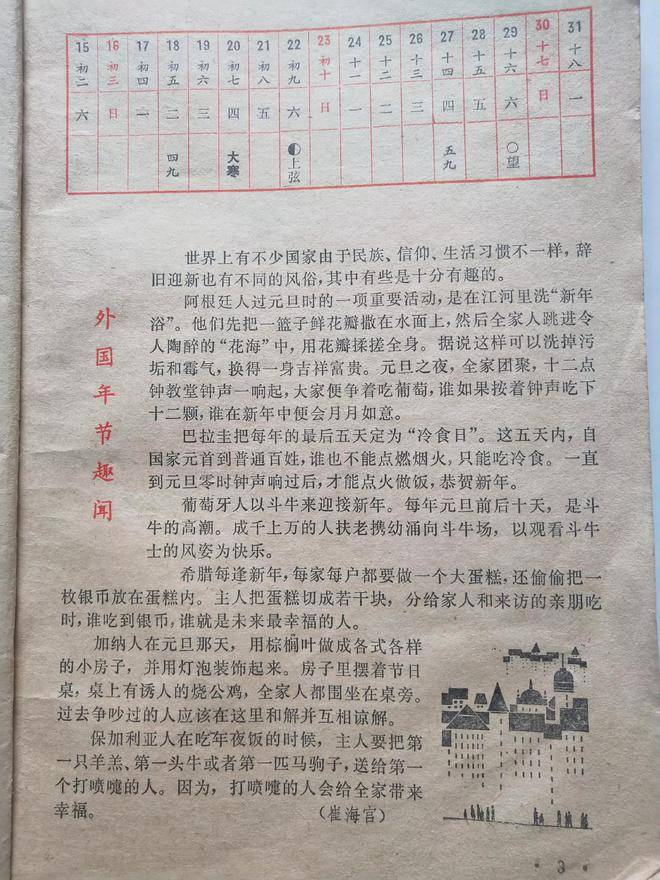 15 16 17 18 19 20 21 22 23 24 25 26 27 28 29 30 31
初二 初三 初四 初五 初六 初七 初八 初九 初十 十一 十二 十三 十四 十五 十六 十七 十八
六 日 一 二 三 四 五 六 日 一 二 三 四 五 六 日 一
四九 大寒 上弦 五九 望
外国年节趣闻
世界上有不少国家由于民族、信仰、生活习惯不一样，辞
旧迎新也有不同的风俗，其中有些是十分有趣的。
阿根廷人过元旦时的一项重要活动，是在江河里洗“新年
浴”。他们先把一篮子鲜花瓣撒在水面上，然后全家人跳进令
人陶醉的“花海”中，用花瓣揉搓全身。据说这样可以洗掉污
垢和霉气，换得一身吉祥富贵。元旦之夜，全家团聚，十二点
钟教堂钟声一响起，大家便争着吃葡萄，谁如果按着钟声吃下
十二颗，谁在新年中便会月月如意。
巴拉圭把每年的最后五天定为“冷食日”。这五天内，自
国家元首到普通百姓，谁也不能点燃烟火，只能吃冷食。一直
到元旦零时钟声响过后，才能点火做饭，恭贺新年。
葡萄牙人以斗牛来迎接新年。每年元旦前后十天，是斗
牛的高潮。成千上万的人扶老携幼涌向斗牛场，以观看斗牛
士的风姿为快乐。
希腊每逢新年，每家每户都要做一个大蛋糕，还偷偷把一
枚银币放在蛋糕内。主人把蛋糕切成若干块，分给家人和来访的亲朋吃
时，谁吃到银币，谁就是未来最幸福的人。
加纳人在元旦那天，用棕榈叶做成各式各样
的小房子，并用灯泡装饰起来。房子里摆着节日
桌，桌上有诱人的烧公鸡，全家人都围坐在桌旁。
过去争吵过的人应该在这里和解并互相谅解。
保加利亚人在吃年夜饭的时候，主人要把第
一只羊羔、第一头牛或者第一匹马驹子，送给第一
个打喷嚏的人。因为，打喷嚏的人会给全家带来
幸福。（崔海宫）
· 3 ·